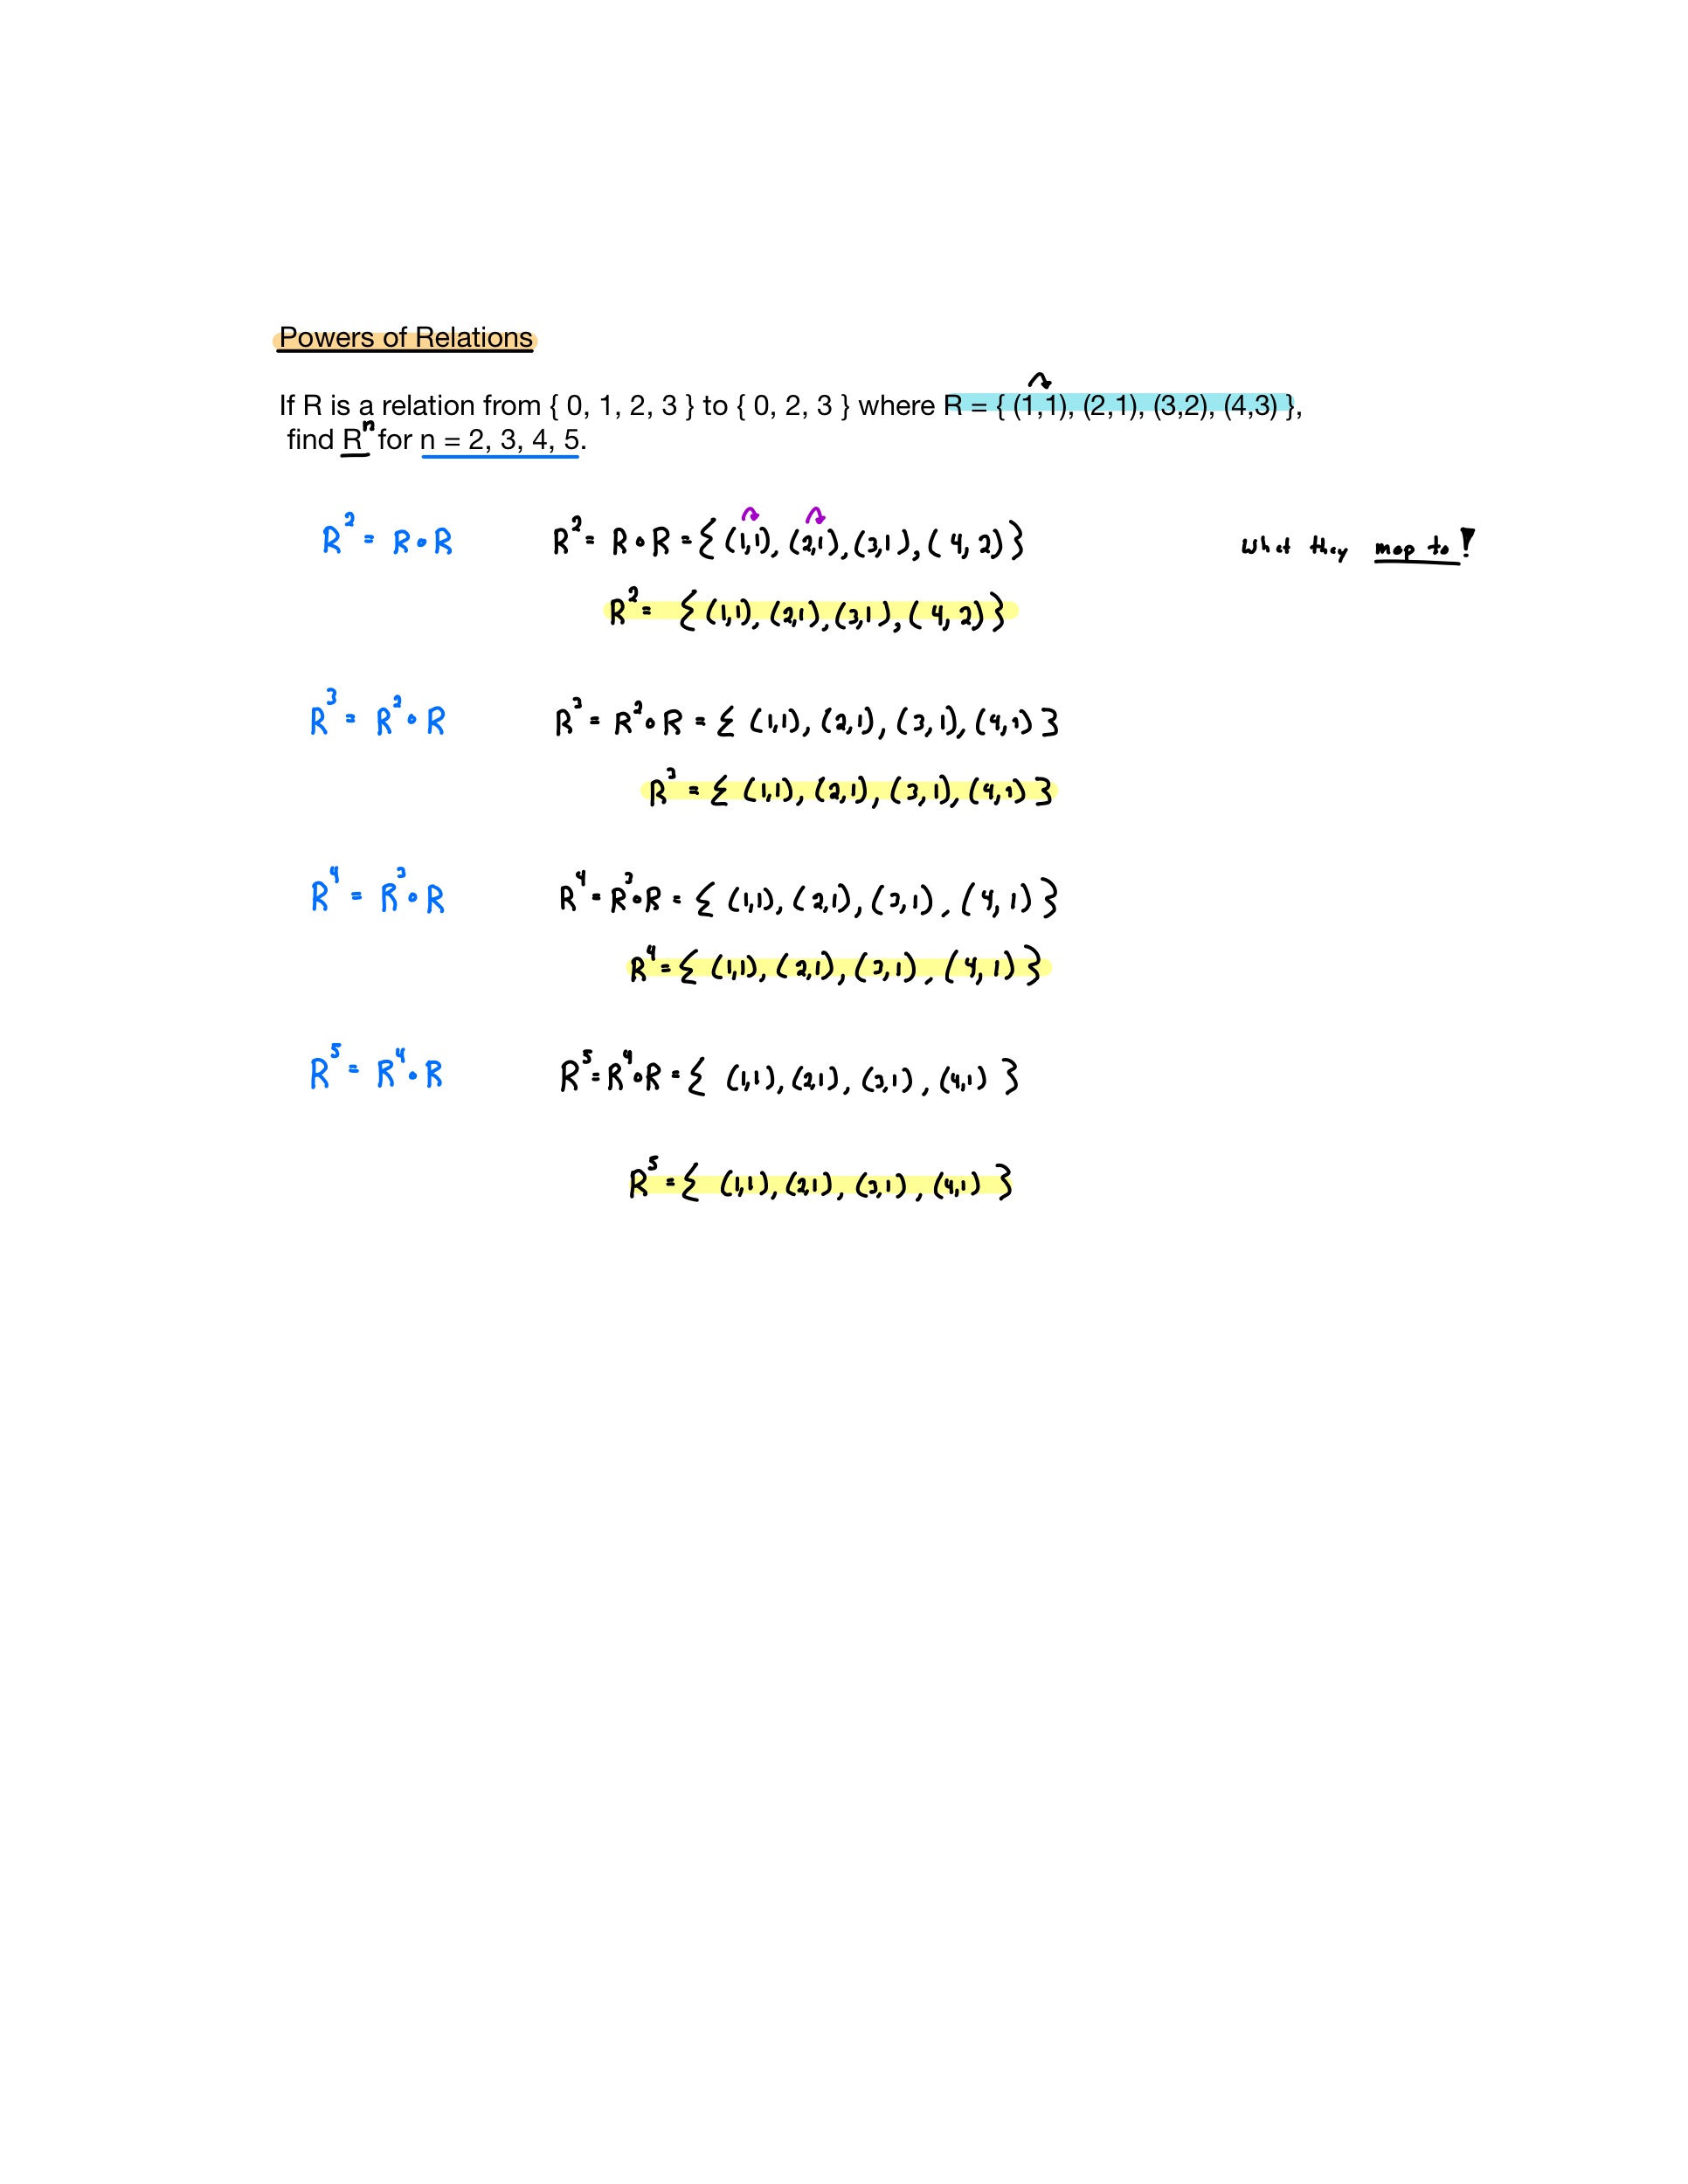 Powers of Relations
If R is a relation from { 0, 1, 2, 3 } to { 0, 2, 3 } where R = { (1,1), (2,1), (3,2), (4,3) },
find Rⁿ for n = 2, 3, 4, 5.
R² = R∘R R² = R∘R = { (1,1), (2,1), (3,1), (4,2) } what they map to!
R² = { (1,1), (2,1), (3,1), (4,2) }
R³ = R²∘R R³ = R²∘R = { (1,1), (2,1), (3,1), (4,1) }
R³ = { (1,1), (2,1), (3,1), (4,1) }
R⁴ = R³∘R R⁴ = R³∘R = { (1,1), (2,1), (3,1), (4,1) }
R⁴ = { (1,1), (2,1), (3,1), (4,1) }
R⁵ = R⁴∘R R⁵ = R⁴∘R = { (1,1), (2,1), (3,1), (4,1) }
R⁵ = { (1,1), (2,1), (3,1), (4,1) }